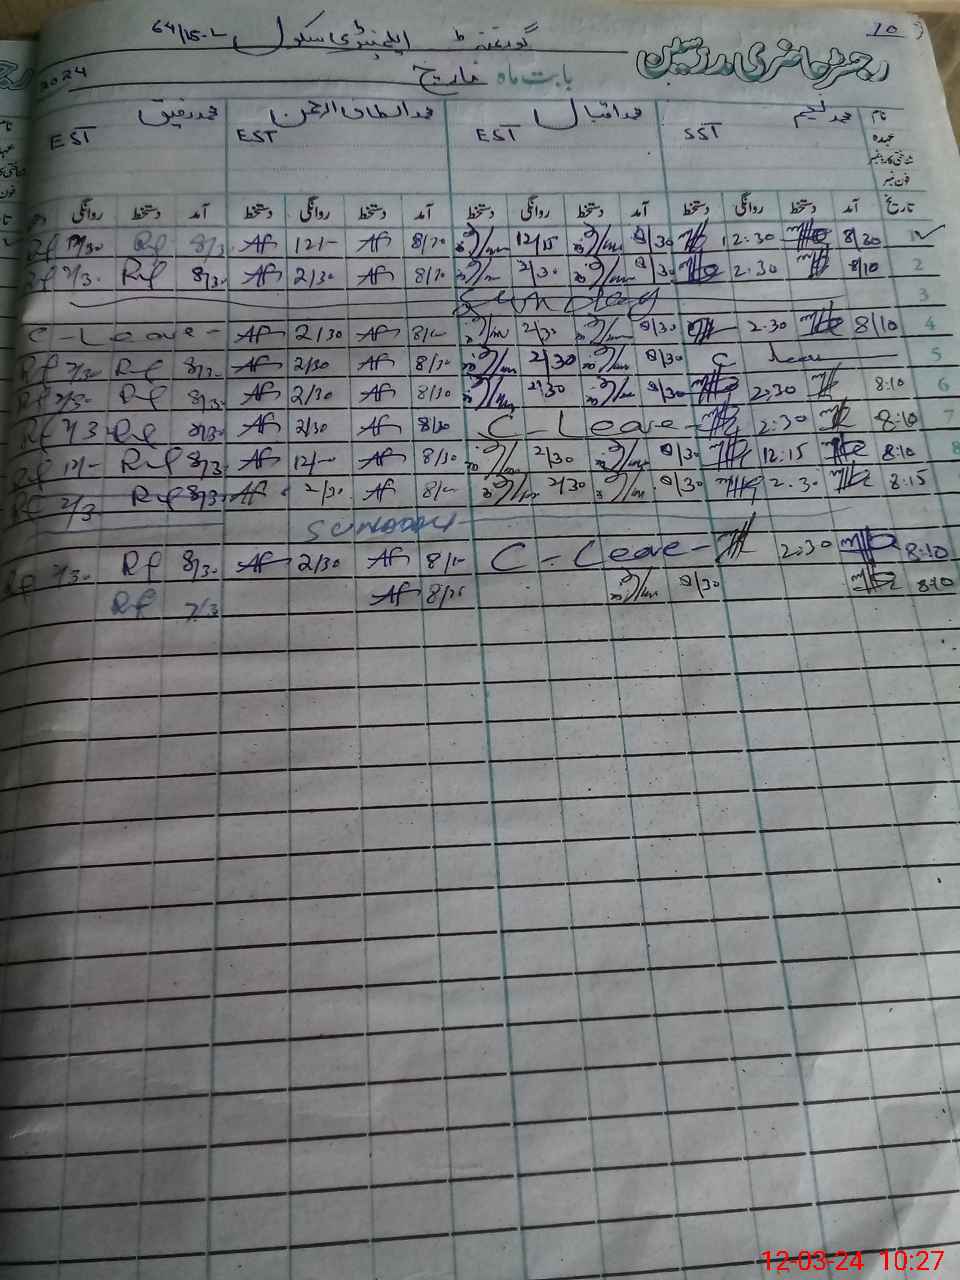 10
گورنمنٹ ایلیمنٹری سکول 64/15-L
رجسٹر حاضری مدرسین
بابت ماہ مارچ 2024
نام محمد نعیم محمد اقبال محمد الطاف الرحمن محمد رفیق
عہدہ SST EST EST EST
شناختی کارڈ نمبر
فون نمبر
تاریخ آمد دستخط روانگی دستخط آمد دستخط روانگی دستخط آمد دستخط روانگی دستخط آمد دستخط روانگی
1 8/20 12:30 8/30 12/15 8/30 Af 12/- Af 8/3. Rf 12/30 Rf
2 8/10 2.30 8/30 2/30 8/30 Af 2/30 Af 8/3. Rf 2/3. Rf
3 Sunday
4 8/10 2.30 8/30 2/30 8/- Af 2/30 Af C-Leave-
5 C leave 8/30 2/30 8/30 Af 2/30 Af 8/3. Rf 2/30 Rf
6 8:10 2:30 8/30 2/30 8/30 Af 2/30 Af 8/3. Rf 2/30 Rf
7 8:10 2:30 C-Leave- 8/30 Af 2/30 Af 8/30 Rf 2/3 Rf
8 8:10 12:15 8/30 2/30 8/30 Af 12/- Af 8/3. Rf 12/- Rf
8:15 2.30 8/30 2/30 8/- Af 2/30 Af 8/3. Rf 2/3 Rf
Sunday
8:10 2:30 C-Leave- 8/- Af 2/30 Af 8/3. Rf 2/30 Rf
8:10 8/30 Af Rf
12-03-24 10:27